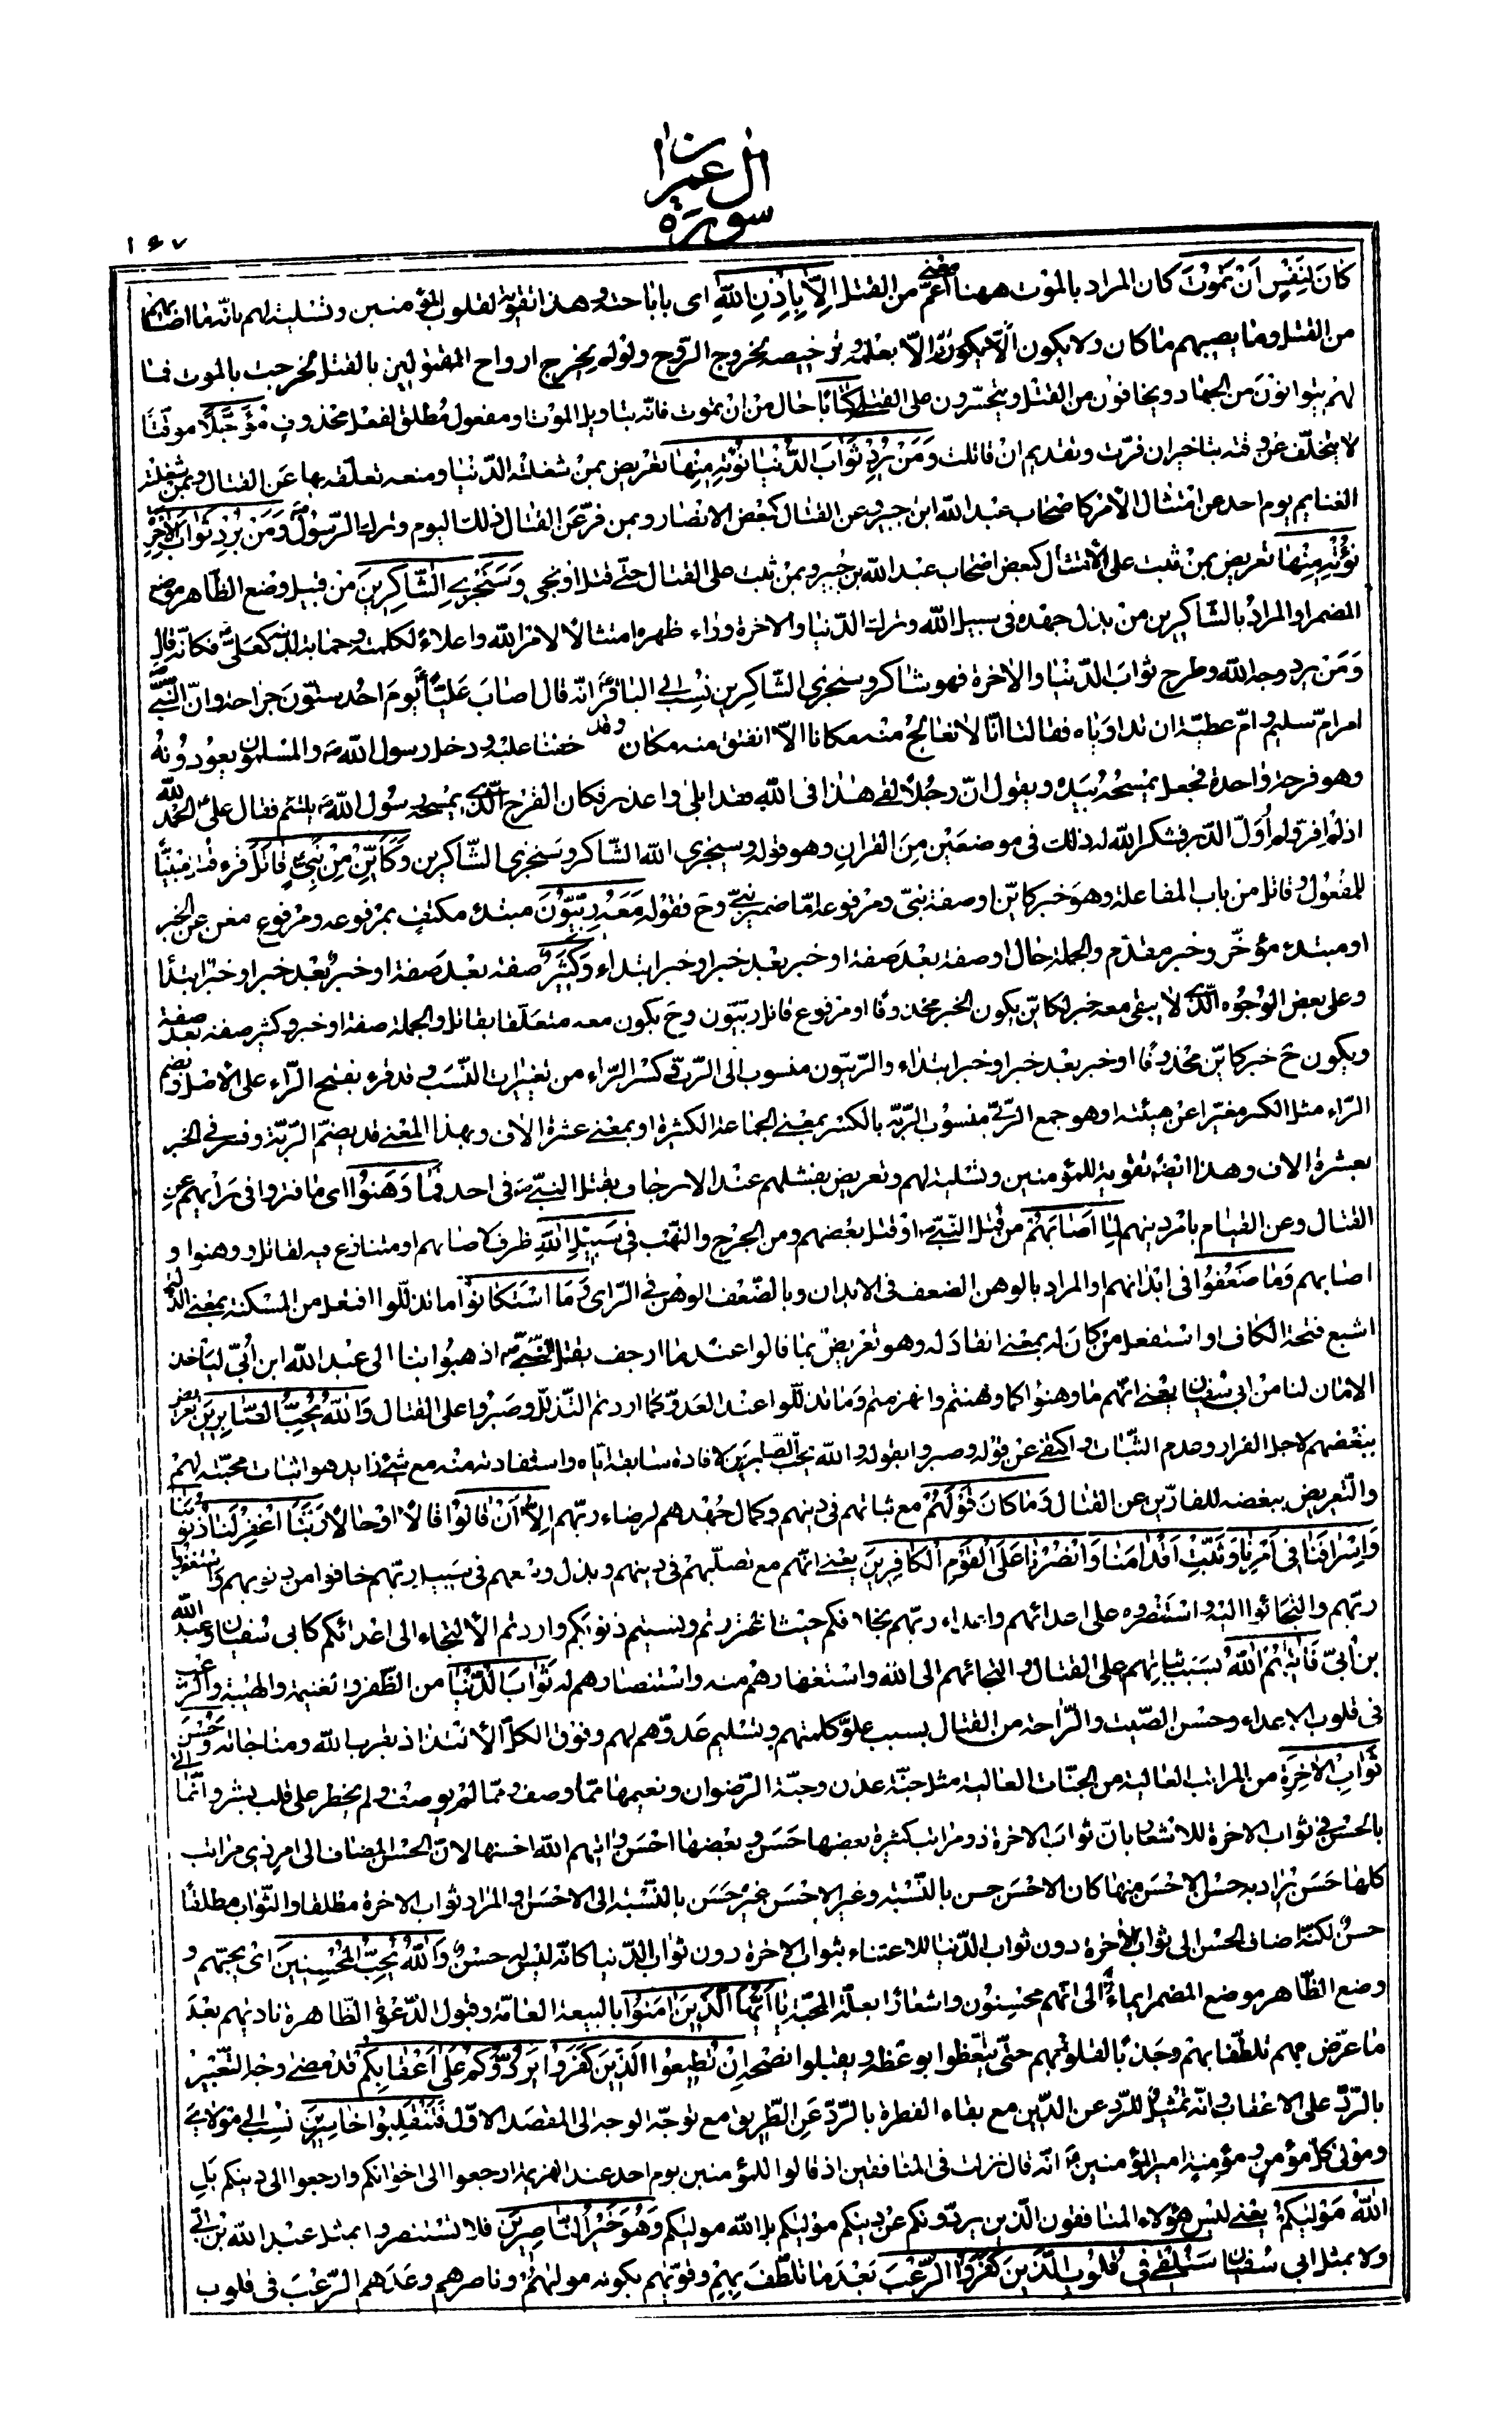 سورة
ال عمران
١٤٧
كَانَ لِنَفْسٍ اَنْ تَمُوْتَ كان المراد بالموت ههنا معنى اعمّ من القتل اِلَّا بِاِذْنِ اللهِ اى باباحته وهذا تقوية لقلوب المؤمنين وتسلية لهم بانّه ما اصابهم
من القتل وما يصيبهم ما كان ولا يكون الّا بعلمه وترخيصه بخروج الروح وقوله يخرج ارواح المقتولين بالقتل كمخرج بالموت فما
لهم يتوانون من الجهاد ويخافون من القتل ويتحسّرون على القتلى كِتَابًا حال من ان تموت فانّه بتاويل الموت او مفعول مطلق لفعل محذوف مُؤَجَّلًا موقّتًا
لا يتخلّف عن وقته بتاخير ان فرّت وتقديم ان قاتلت وَمَنْ يُرِدْ ثَوَابَ الدُّنْيَا نُؤْتِهِ مِنْهَا تعريض بمن شغلته الدّنيا ومنعه تعلّقه بها عن القتال وبمن شغلته
الغنايم يوم احد عن امتثال الامر كاصحاب عبد الله ابن جبير وعن القتال كبعض الانصار وبمن فرّ عن القتال ذلك اليوم وترك الرّسول ص وَمَنْ يُرِدْ ثَوَابَ الْاٰخِرَةِ
نُؤْتِهِ مِنْهَا تعريض بمن ثبت على الامتثال كبعض اصحاب عبد الله بن جبير وبمن ثبت على القتال حتّى قتل او نجى وَسَنَجْزِي الشَّاكِرِينَ من قبيل وضع الظّاهر موضع
المضمر او المراد بالشّاكرين من بذل جهده فى سبيل الله وترك الدّنيا والاخرة وراء ظهره امتثالًا لامر الله واعلاءً لكلمته وحماية لدينه كعلىّ ع فكانّه قال
وَمَن يرد وجه الله وطرح ثواب الدّنيا والاخرة فهو شاكر وسنجزى الشّاكرين نسب الى الباقر ع انّه قال اصاب عليًّا ع يوم احد ستّون جراحة وانّ النّبىّ ص
امر امّ سليم وامّ عطيّة ان تداوياه فقالتا انّا لا نعالج منه مكانا الّا انفتق منه مكان وقد خفنا عليه ودخل رسول الله ص والمسلمون يعودونه
وهو قرحة واحدة فجعل يمسحه بيده ويقول انّ رجلًا لقى هذا فى الله فقد ابلى واعذر فكان القرح الّذى يمسحه رسول الله ص يلتئم فقال علىّ ع الحمد لله
اذ لم افرّ ولم اولّ الدّبر فشكر الله له ذلك فى موضعين من القران وهو قوله وسيجزى الله الشّاكرين وسنجزى الشّاكرين وَكَاَيِّنْ مِنْ نَبِيٍّ قَاتَلَ قرء قتل مبنيًّا
للمفعول وقاتل من باب المفاعلة وهو خبر كايّن او صفة نبىّ ومرفوعه امّا ضمير نبىّ وح فقوله مَعَهُ رِبِّيُّونَ مبتدء مكتف بمرفوعه ومرفوع مغن عن الخبر
او مبتدء مؤخّر وخبر مقدّم والجملة حال او صفة بعد صفة او خبر بعد خبر او خبر ابتداء وكَثِيرٌ صفة بعد صفة او خبر بعد خبر او خبر ابتداء
وعلى بعض الوجوه الّذى لا يبقى معه خبر لكايّن يكون الخبر محذوفًا او مرفوع قاتل ربّيّون وح يكون معه متعلّقا بقاتل والجملة صفة او خبر وكثير صفة بعد صفة
ويكون ح خبر كايّن محذوفًا او خبر بعد خبر او خبر ابتداء والرّبّيّون منسوب الى الرّبّ وكسر الرّاء من تغييرات النّسب وقد قرء بفتح الرّاء على الاصل وبضم
الرّاء مثل الكسر مغيّرا عن هيئته او هو جمع الرّبّىّ منسوب الرّبّة بالكسر بمعنى الجماعة الكثيرة او بمعنى عشرة الاف وبهذا المعنى قد يضمّ الرّبّة وفسر فى الخبر
بعشرة الاف وهذا ايضًا تقوية للمؤمنين وتسلية لهم وتعريض بفشلهم عند الارجاف بقتل النّبىّ ص فى احد فَمَا وَهَنُوْا اى ما فتروا فى رأيهم عن
القتال وعن القيام بامر دينهم لِمَا اَصَابَهُمْ من قتل النّبىّ ص او قتل بعضهم ومن الجرح والنّهب فِى سَبِيلِ اللهِ ظرف لاصابهم او متنازع فيه لقاتل ووهنوا و
اصابهم وَمَا ضَعُفُوْا فى ابدانهم او المراد بالوهن الضعف فى الابدان وبالضّعف الوهن فى الرّاى وَمَا اسْتَكَانُوْا ما تذلّلوا افتعل من المسكنة بمعنى الذّلّة
اشبع فتحة الكاف او استفعل من كان له بمعنى انقاد له وهو تعريض بما قالوا عند ما ارجف بقتل النّبىّ ص اذهبوا بنا الى عبد الله ابن اُبىّ لياخذ
الامان لنا من ابى سفيان يعنى انّهم ما وهنوا كما وهنتم وانهزمتم وما تذلّلوا عند العدوّ كما اردتم التّذلّل وصبروا على القتال وَاللهُ يُحِبُّ الصَّابِرِينَ تعريض
ببغضهم لاجل الفرار وعدم الثّبات واكتفى عن قوله وصبروا بقوله والله يحبّ الصّابرين لافادة سابقه ايّاه واستفادته منه مع شىء زايد هو اثبات محبّته لهم
والتّعريض ببغضه للفارّين عن القتال وَمَا كَانَ قَوْلَهُمْ مع ثباتهم فى دينهم وكمال جهدهم لرضاء ربّهم اِلَّا اَنْ قَالُوْا قالًا او حالًا رَبَّنَا اغْفِرْ لَنَا ذُنُوبَنَا
وَاِسْرَافَنَا فِى اَمْرِنَا وَثَبِّتْ اَقْدَامَنَا وَانْصُرْنَا عَلَى الْقَوْمِ الْكَافِرِينَ يعنى انّهم مع تصلّبهم فى دينهم وبذل وسعهم فى سبيل ربّهم خافوا من ذنوبهم واستغفروا
ربّهم والتجاؤا اليه واستنصروه على اعدائهم واعداء ربّهم بخلافكم حيث اغتررتم ونسيتم ذنوبكم واردتم الالتجاء الى اعدائكم كابى سفيان وعبد الله
بن اُبىّ فَاٰتٰيهُمُ اللهُ بسبب ثباتهم على القتال والتجائهم الى الله واستغفارهم منه واستنصارهم له ثَوَابَ الدُّنْيَا من الظّفر والغنيمة والهيبة والرّعب
فى قلوب الاعداء وحسن الصّيت والرّاحة من القتال بسبب علوّ كلمتهم وتسليم عدوّهم لهم وفوق الكلّ الالتذاذ بقرب الله ومناجاته وَحُسْنَ
ثَوَابِ الْاٰخِرَةِ من المراتب العالية من الجنّات العالية مثل جنّة عدن وجنّة الرّضوان ونعيمها ممّا وصف وممّا لم يوصف ولم يخطر على قلب بشر وانّما اتى
بالحسن فى ثواب الاخرة للاشعار بانّ ثواب الاخرة ذو مراتب كثيرة بعضها حسن وبعضها احسن واتيهم الله احسنها لانّ الحسن المضاف الى امر ذى مراتب
كلها حسن يراد به حسن الاحسن منها كان الاحسن حسن بالنّسبة وغير الاحسن غير حسن بالنّسبة الى الاحسن او المراد ثواب الاخرة مطلقا والثّواب مطلقًا
حسن لكنّه اضاف الحسن الى ثواب الاخرة دون ثواب الدّنيا للاعتناء بثواب الاخرة دون ثواب الدّنيا كانّه ليس له حسن وَاللهُ يُحِبُّ الْمُحْسِنِينَ اى يحبّهم و
وضع الظّاهر موضع المضمر ايماءً الى انّهم محسنون واشعارًا بعلّة المحبّة يَا اَيُّهَا الَّذِينَ اٰمَنُوْا بالبيعة العامّة وقبول الدّعوة الظّاهرة ناديهم بعد
ما عرّض بهم تلطّفا بهم وجذبًا لقلوبهم حتّى يتّعظوا بوعظه ويقبلوا نصحه اِنْ تُطِيعُوا الَّذِينَ كَفَرُوْا يَرُدُّوكُمْ عَلٰى اَعْقَابِكُمْ قد مضى وجه التّعبير
بالرّدّ على الاعقاب وانّه تمثيل للرّدّ عن الدّين مع بقاء الفطرة بالرّدّ عن الطّريق مع توجّه الوجه الى المقصد الاوّل فَتَنْقَلِبُوْا خَاسِرِينَ نسب الى مولاى
ومولى كلّ مؤمن ومؤمنة امير المؤمنين ع انّه قال نزلت فى المنافقين اذ قالوا للمؤمنين يوم احد عند الهزيمة ارجعوا الى اخوانكم وارجعوا الى دينكم بَلِ
اللهُ مَوْلٰيكُمْ يعنى ليس هؤلاء المنافقون الّذين يردّونكم عن دينكم موليكم بل الله موليكم وَهُوَ خَيْرُ النَّاصِرِينَ فلا تستنصروا بمثل عبد الله بن ابىّ
ولا بمثل ابى سفيان سَنُلْقِى فِى قُلُوبِ الَّذِينَ كَفَرُوا الرُّعْبَ بعد ما تلطّف بهم وقوّيهم بكونه موليهم وناصرهم وعدهم الرّعب فى قلوب